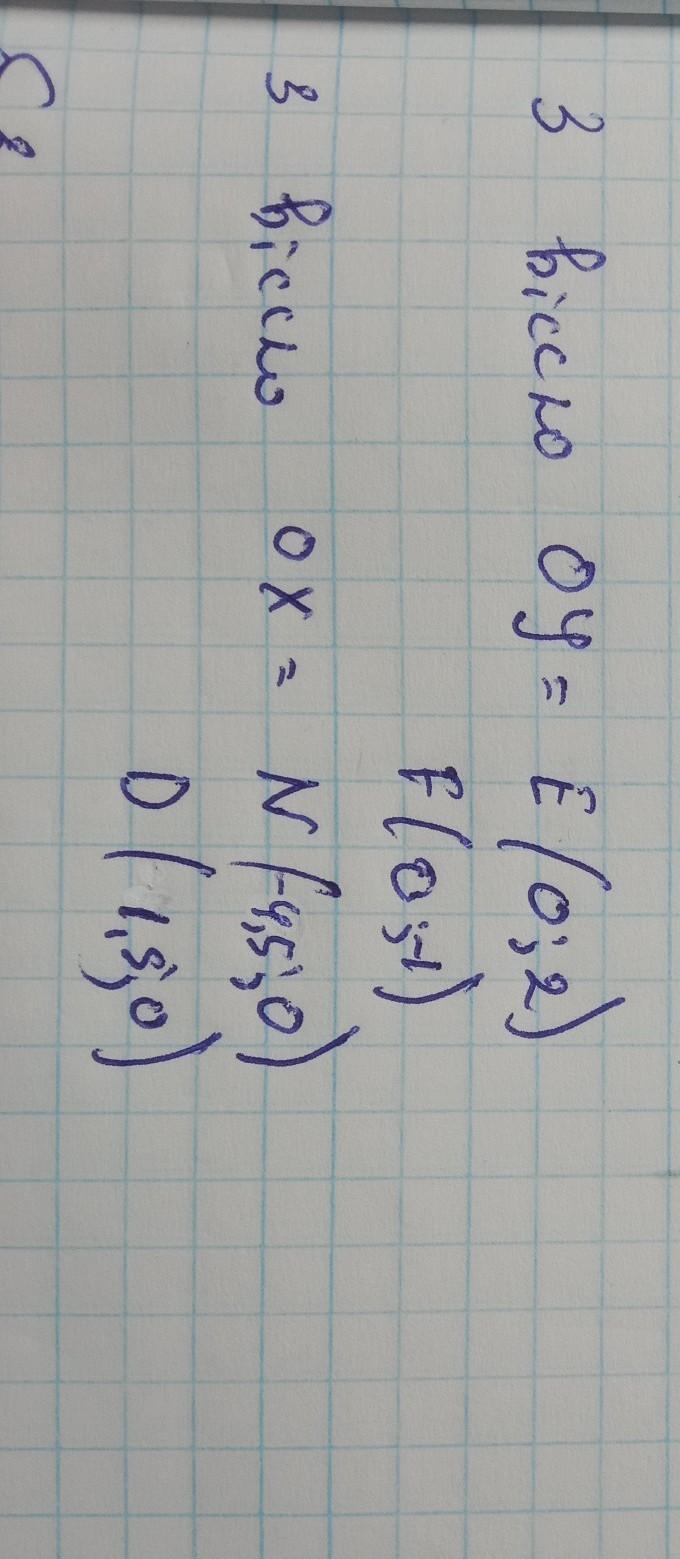 З віссю Oy = E (0; 2)
F (0; -1)
з віссю OX = N (-4,5; 0)
D (1,5; 0)